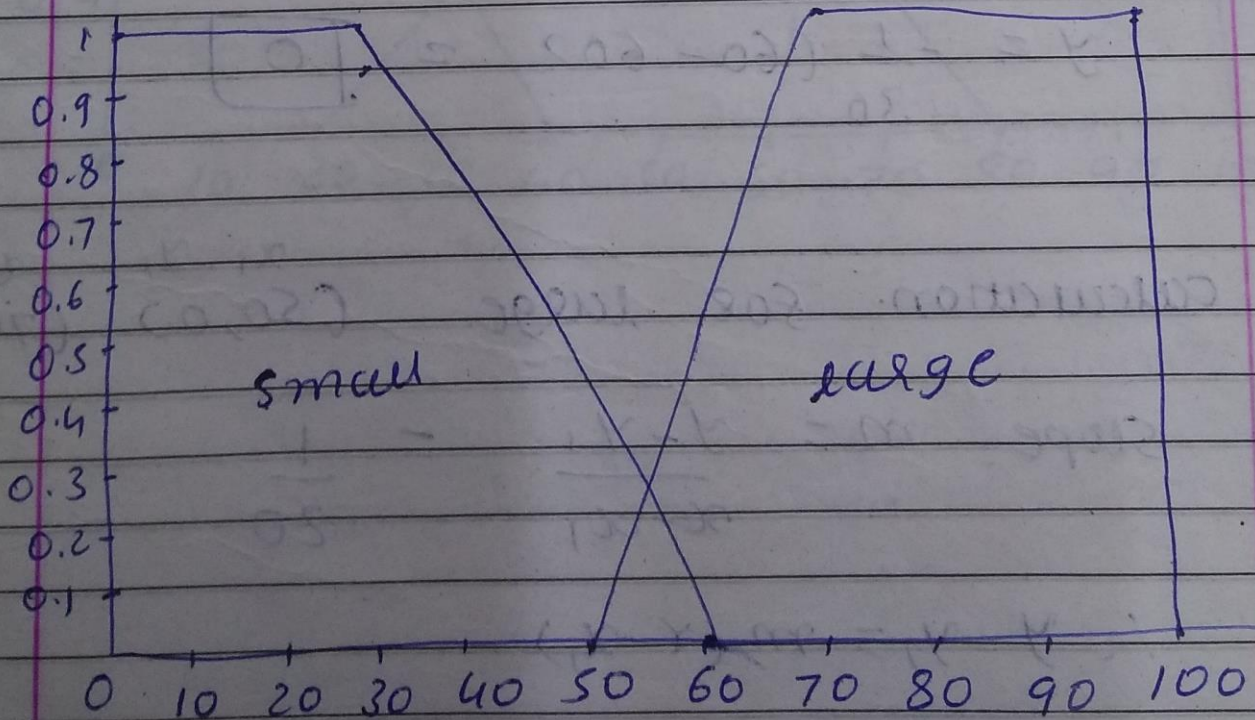 1
0.9
0.8
0.7
0.6
0.5
0.4
0.3
0.2
0.1
small large
0 10 20 30 40 50 60 70 80 90 100